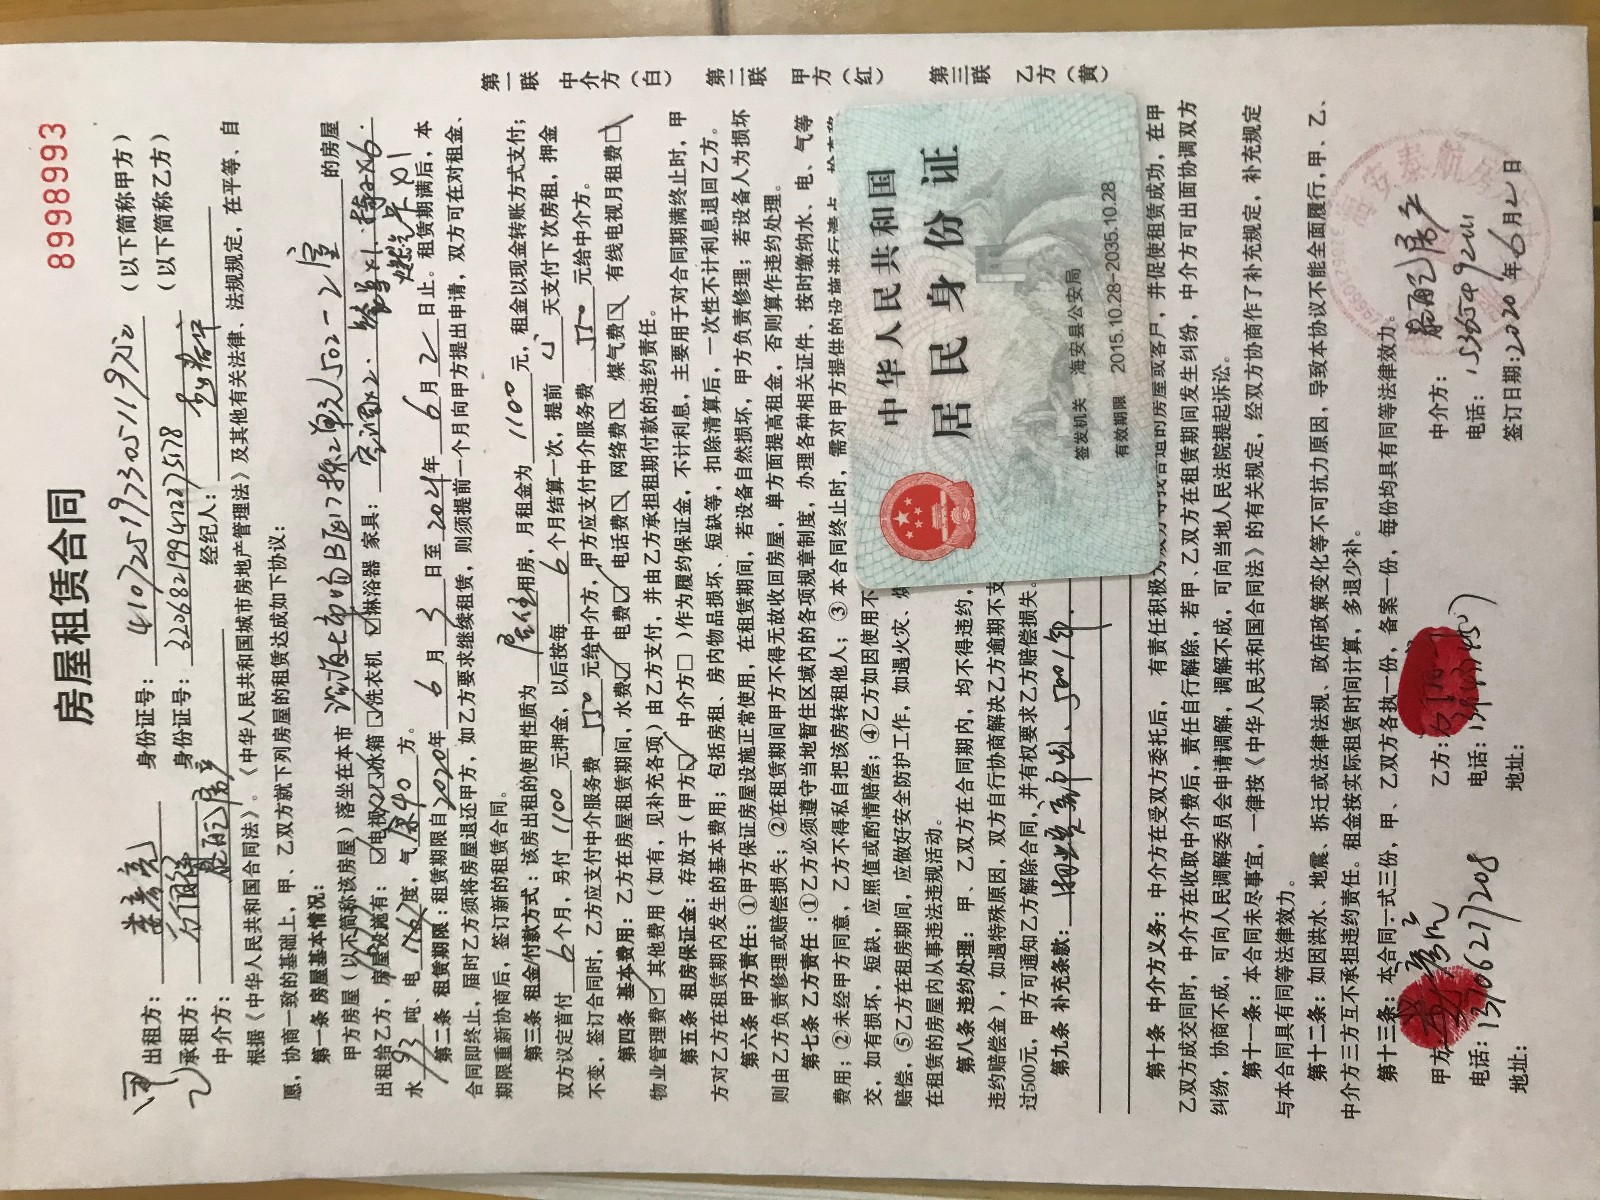 8998993
房屋租赁合同
出租方: 身份证号: (以下简称甲方)
承租方: 身份证号: (以下简称乙方)
中介方: 经纪人:
根据《中华人民共和国合同法》、《中华人民共和国城市房地产管理法》及其他有关法律、法规规定，在平等、自
愿，协商一致的基础上，甲、乙双方就下列房屋的租赁达成如下协议：
第一条 房屋基本情况：
甲方房屋（以下简称该房屋）落坐在本市 的房屋
出租给乙方，房屋设施有：☑电视☑冰箱☐洗衣机☑淋浴器 家具：
水 93 吨、电 度，气 方。
第二条 租赁期限：租赁期限自2020年 6 月 3 日至2021年 6 月 2 日止。租赁期满后，本
合同即终止，届时乙方须将房屋退还甲方，如乙方要求继续租赁，则须提前一个月向甲方提出申请，双方可在对租金、
期限重新协商后，签订新的租赁合同。
第三条 租金付款方式：该房出租的使用性质为 居住 用房，月租金为 1100 元，租金以现金转账方式支付；
双方议定首付 6 个月，另付 1100 元押金，以后按每 6 个月结算一次，提前 天支付下次房租，押金
不变，签订合同时，乙方应支付中介服务费 元给中介方，甲方应支付中介服务费 元给中介方。
第四条 基本费用：乙方在房屋租赁期间，水费☑ 电费☑ 电话费☐ 网络费☐ 煤气费☐ 有线电视月租费☐
物业管理费☑其他费用（如有，见补充各项）由乙方支付，并由乙方承担租期付款的违约责任。
第五条 租房保证金：存放于（甲方☑ 中介方☐ ）作为履约保证金，不计利息，主要用于对合同期满终止时，甲
方对乙方在租赁期内发生的基本费用；包括房租、房内物品损坏、短缺等，扣除清算后，一次性不计利息退回乙方。
第六条 甲方责任：①甲方保证房屋设施正常使用，在租赁期间，若设备自然损坏，甲方负责修理；若设备人为损坏
则由乙方负责修理或赔偿损失；②在租赁期间甲方不得无故收回房屋，单方面提高租金，否则算作违约处理。
第七条 乙方责任：①乙方必须遵守当地暂住区域内的各项规章制度，办理各种相关证件，按时缴纳水、电、气等
费用；②未经甲方同意，乙方不得私自把该房转租他人；③本合同终止时，需对甲方提供的设施进行清点
交，如有损坏，短缺，应照值或酌情赔偿；④乙方如因使用不
赔偿，⑤乙方在租房期间，应做好安全防护工作，如遇火灾、
在租赁的房屋内从事违法违规活动。
第八条 违约处理：甲、乙双方在合同期内，均不得违约，
违约赔偿金），如遇特殊原因，双方自行协商解决乙方逾期不支
过500元，甲方可通知乙方解除合同，并有权要求乙方赔偿损失。
第九条 补充条款：
第十条 中介方义务：中介方在受双方委托后，有责任积极为 的房屋或客户，并促使租赁成功，在甲
乙双方成交同时，中介方在收取中介费后，责任自行解除，若甲、乙双方在租赁期间发生纠纷，中介方可出面协调双方
纠纷，协商不成，可向人民调解委员会申请调解，调解不成，可向当地人民法院提起诉讼。
第十一条：本合同未尽事宜，一律按《中华人民共和国合同法》的有关规定，经双方协商作了补充规定，补充规定
与本合同具有同等法律效力。
第十二条：如因洪水、地震、拆迁或法律法规、政府政策变化等不可抗力原因，导致本协议不能全面履行，甲、乙、
中介方三方互不承担违约责任。租金按实际租赁时间计算，多退少补。
第十三条：本合同一式三份，甲、乙双方各执一份，备案一份，每份均具有同等法律效力。
甲方: 乙方: 中介方:
电话: 13706271208 电话: 电话:
地址: 地址: 签订日期:2020年6月2日
第一联 中介方（白） 第二联 甲方（红） 第三联 乙方（黄）
中华人民共和国
居民身份证
签发机关 海安县公安局
有效期限 2015.10.28-2035.10.28